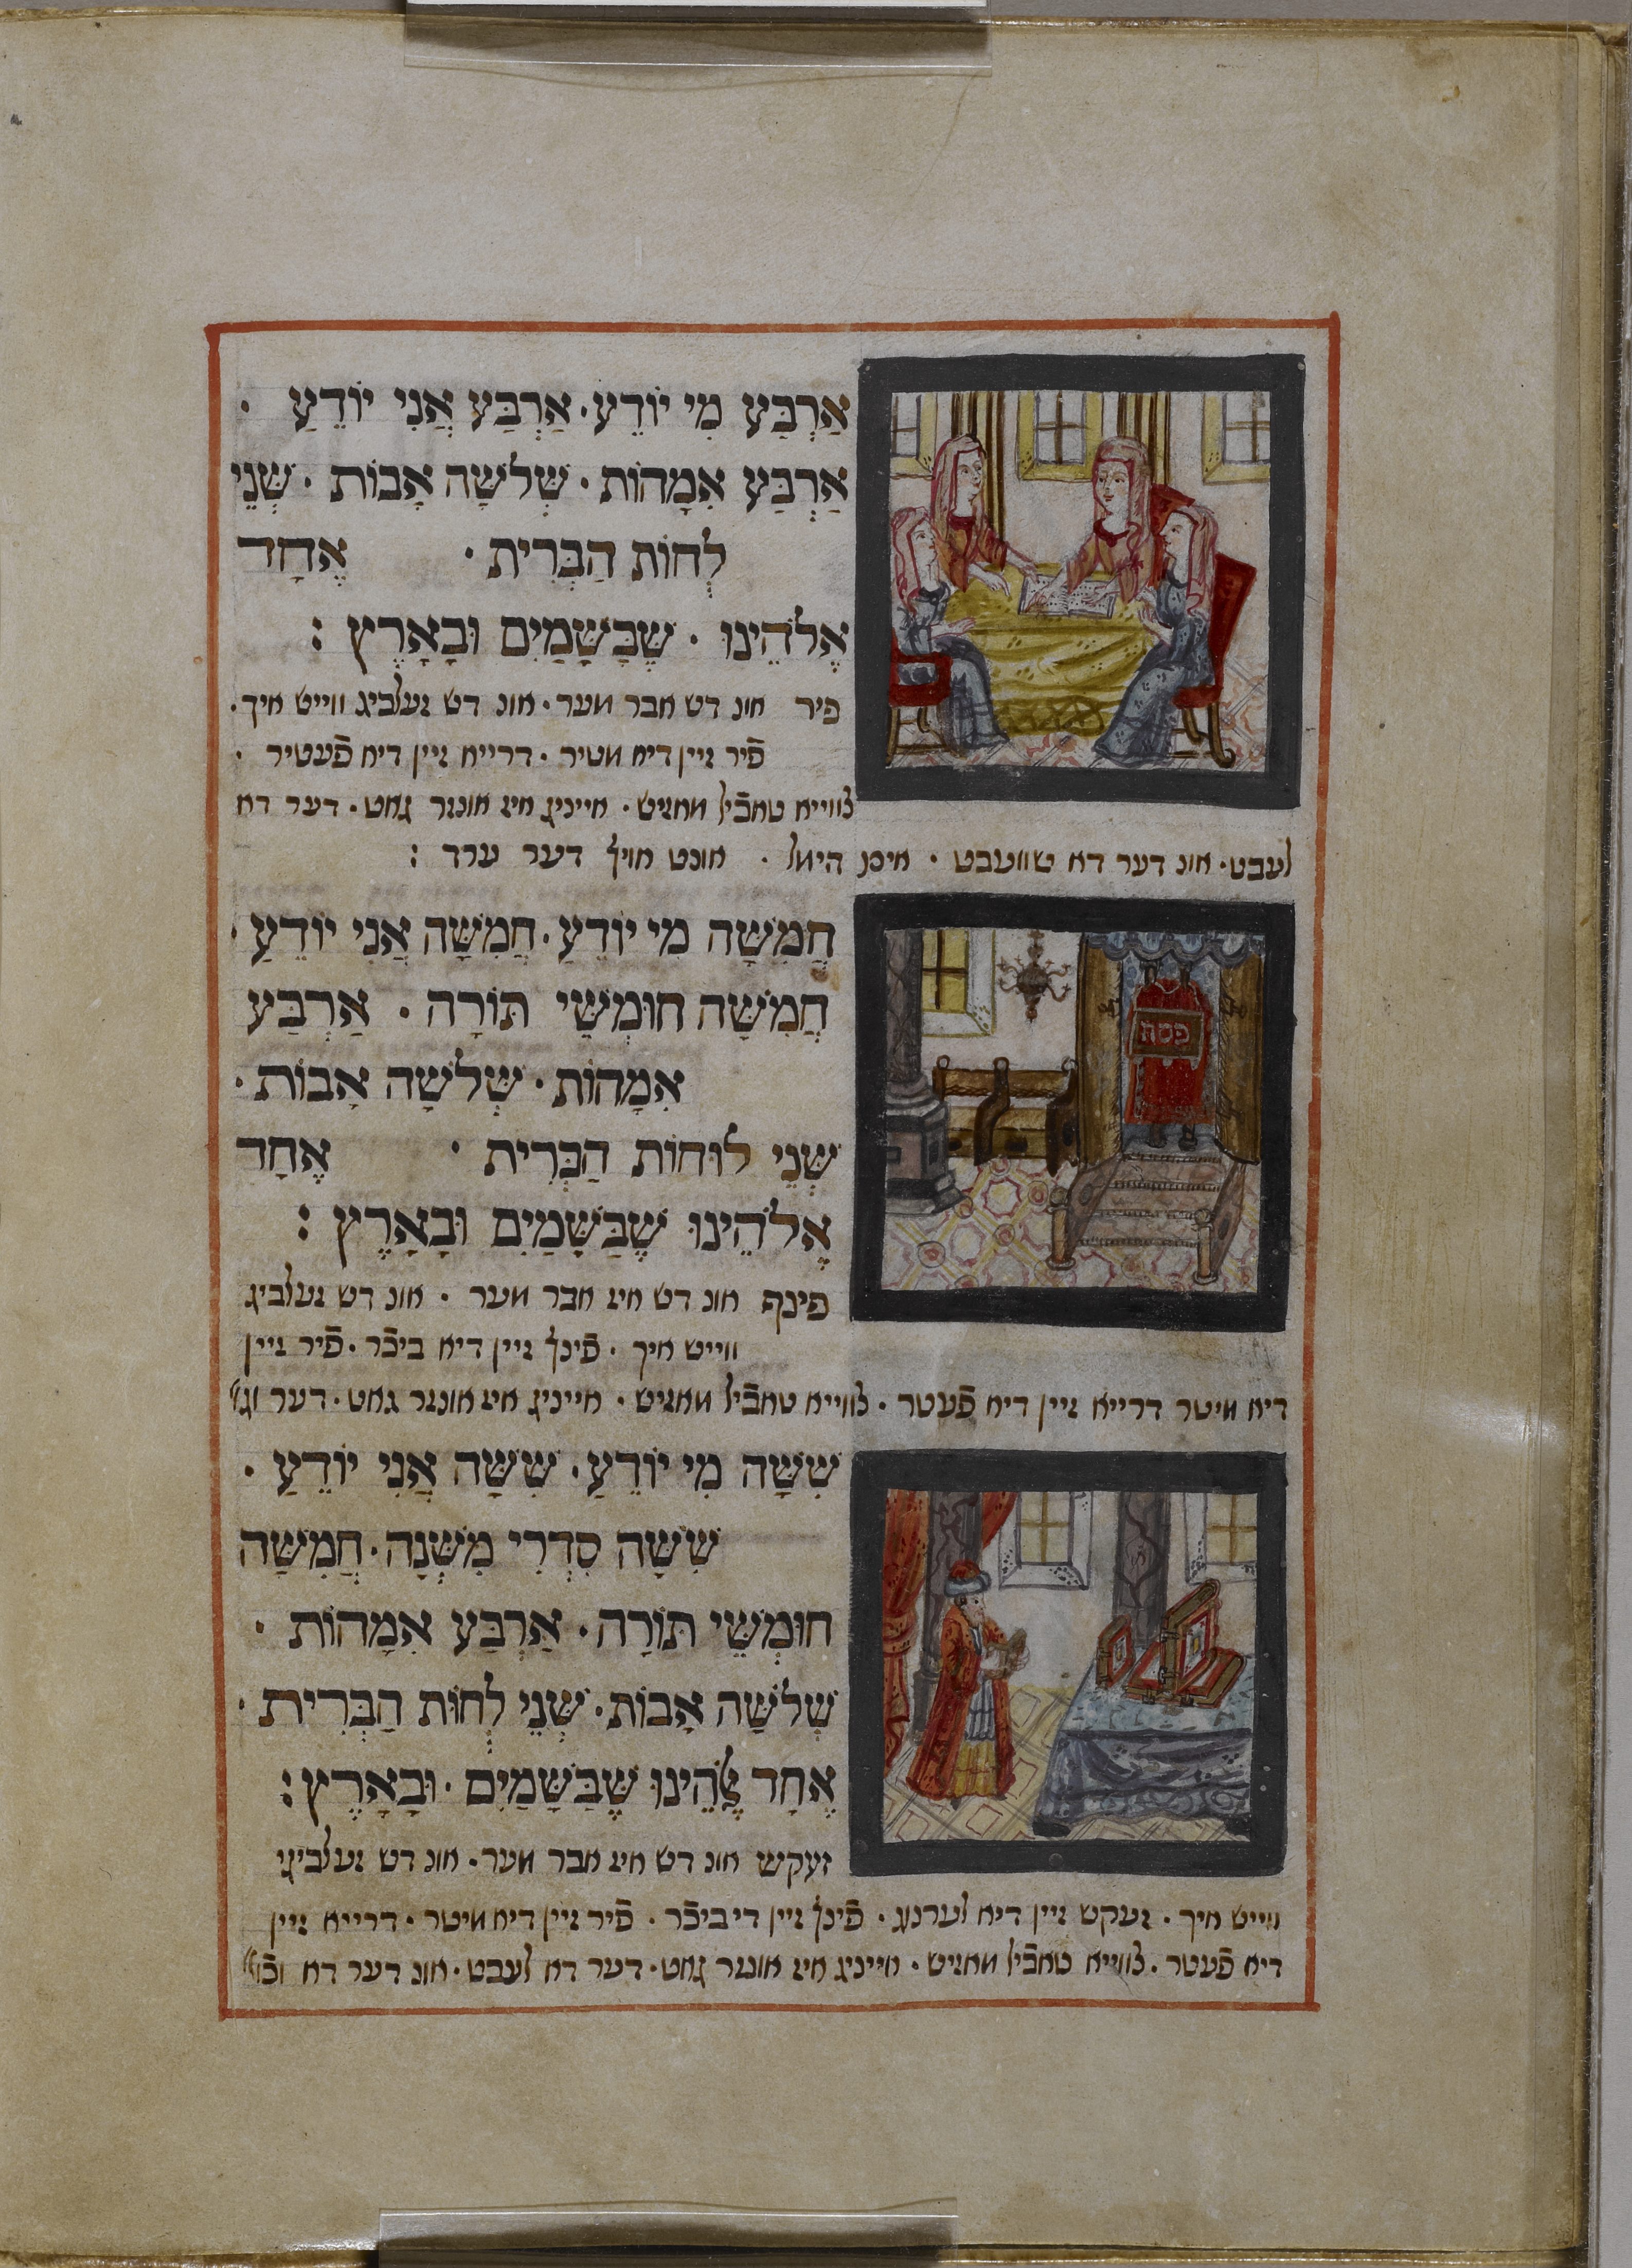 אַרְבַּע מִי יוֹדֵעַ · אַרְבַּע אֲנִי יוֹדֵעַ ·
אַרְבַּע אִמָּהוֹת · שְׁלֹשָׁה אָבוֹת · שְׁנֵי
לְחוֹת הַבְּרִית · אֶחָד
אֱלֹהֵינוּ · שֶׁבַּשָּׁמַיִם וּבָאָרֶץ :
פיר אונ דש אבר מער · אונ דש זעלביג ווייש איך ·
פֿיר זיין דיא מטיר · דרייא זיין דיא פֿעטיר ·
צווייא טאבֿיל מאזיש · אייניג איז אונזר גאט · דער דא
לעבט · אונ דער דא שוועבט · אים הימל · אונט אויף דער ערד :
חֲמִשָּׁה מִי יוֹדֵעַ · חֲמִשָּׁה אֲנִי יוֹדֵעַ ·
חֲמִשָּׁה חוּמְשֵׁי תּוֹרָה · אַרְבַּע
פסח
אִמָּהוֹת · שְׁלֹשָׁה אָבוֹת ·
שְׁנֵי לוּחוֹת הַבְּרִית · אֶחָד
אֱלֹהֵינוּ שֶׁבַּשָּׁמַיִם וּבָאָרֶץ :
פינף אונ דש איז אבר מער · אונ דש זעלביג
ווייש איך · פֿינף זיין דיא ביכֿר · פֿיר זיין
דיא מיטר דרייא זיין דיא פֿעטר · צווייא טאבֿיל מאזיש · אייניג איז אונזר גאט · דער וגו'
שִׁשָּׁה מִי יוֹדֵעַ · שִׁשָּׁה אֲנִי יוֹדֵעַ ·
שִׁשָּׁה סִדְרֵי מִשְׁנָה · חֲמִשָּׁה
חוּמְשֵׁי תּוֹרָה · אַרְבַּע אִמָּהוֹת ·
שְׁלֹשָׁה אָבוֹת · שְׁנֵי לְחוֹת הַבְּרִית ·
אֶחָד אֱלֹהֵינוּ שֶׁבַּשָּׁמַיִם · וּבָאָרֶץ :
זעקש אונ דש איז אבר מער · אונ דש זעלביגי
ווייש איך · זעקש זיין דיא לערנונג · פֿינף זיין די ביכֿר · פֿיר זיין דיא מיטר · דרייא זיין
דיא פֿעטר · צווייא טאבֿיל מאזיש · אייניג איז אונזר גאט · דער דא לעבט · אונ דער דא וכו'